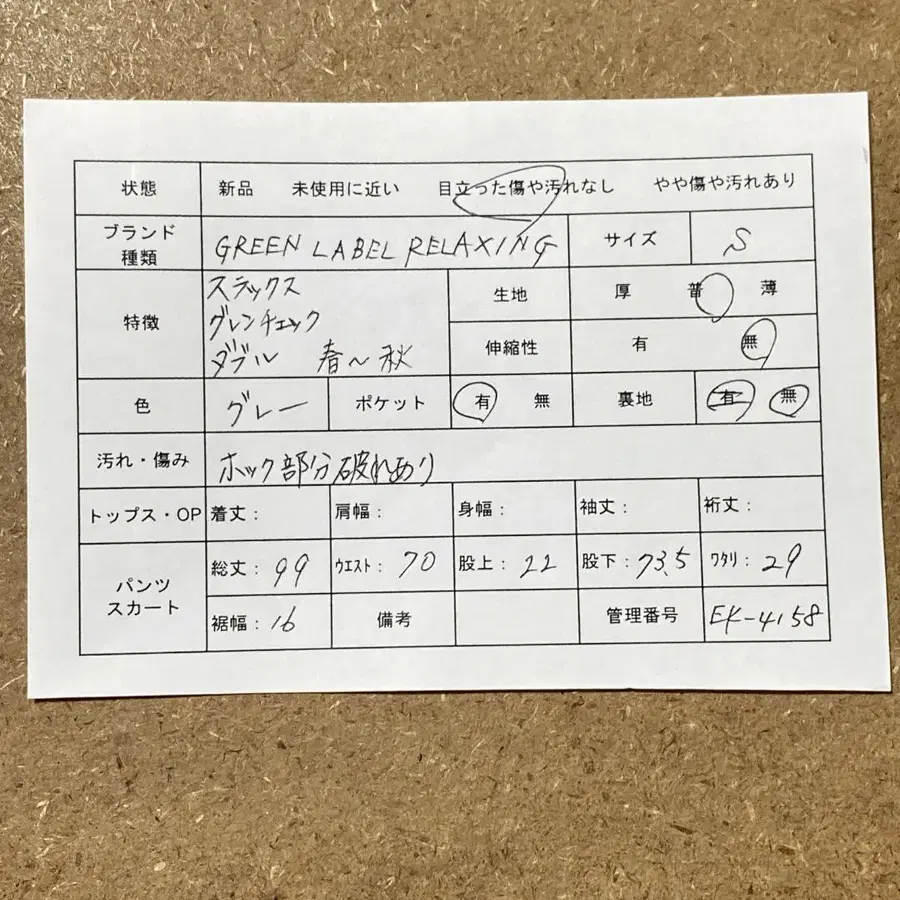 状態 新品 未使用に近い 目立った傷や汚れなし やや傷や汚れあり
ブランド
種類 GREEN LABEL RELAXING サイズ S
特徴 スラックス
グレンチェック
ダブル 春〜秋
生地 厚 普 薄
伸縮性 有 無
色 グレー ポケット 有 無 裏地 有 無
汚れ・傷み ホック部分破れあり
トップス・OP 着丈: 肩幅: 身幅: 袖丈: 裄丈:
パンツ
スカート
総丈: 99 ウエスト: 70 股上: 22 股下: 73.5 ワタリ: 29
裾幅: 16 備考 管理番号 EK-4158